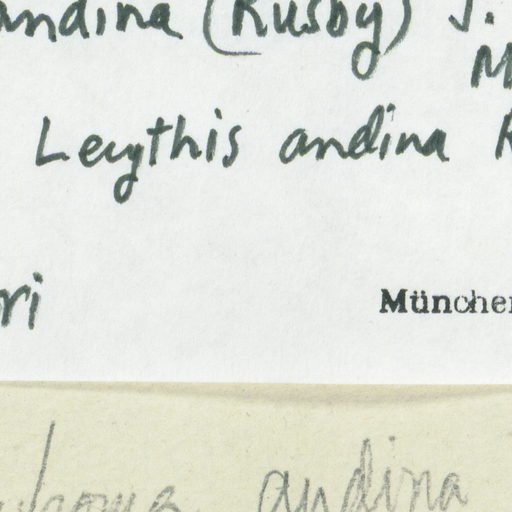 andina (Rusby) J.
M
Lecythis andina R
ri
Münche
andina